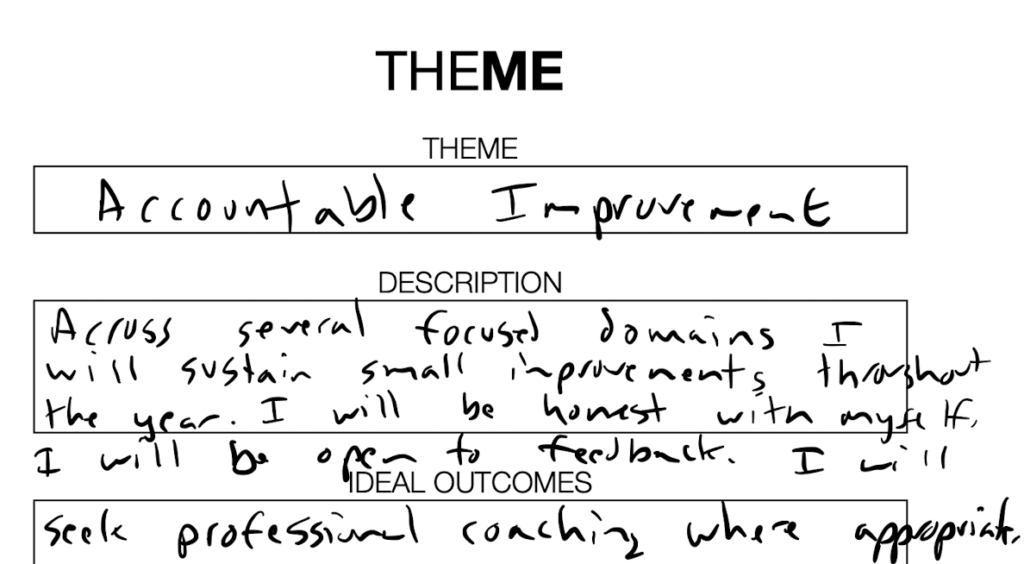 THEME
THEME
Accountable Improvement
DESCRIPTION
Across several focused domains I
will sustain small improvements throughout
the year. I will be honest with myself.
I will be open to feedback. I will
IDEAL OUTCOMES
seek professional coaching where appropriate.